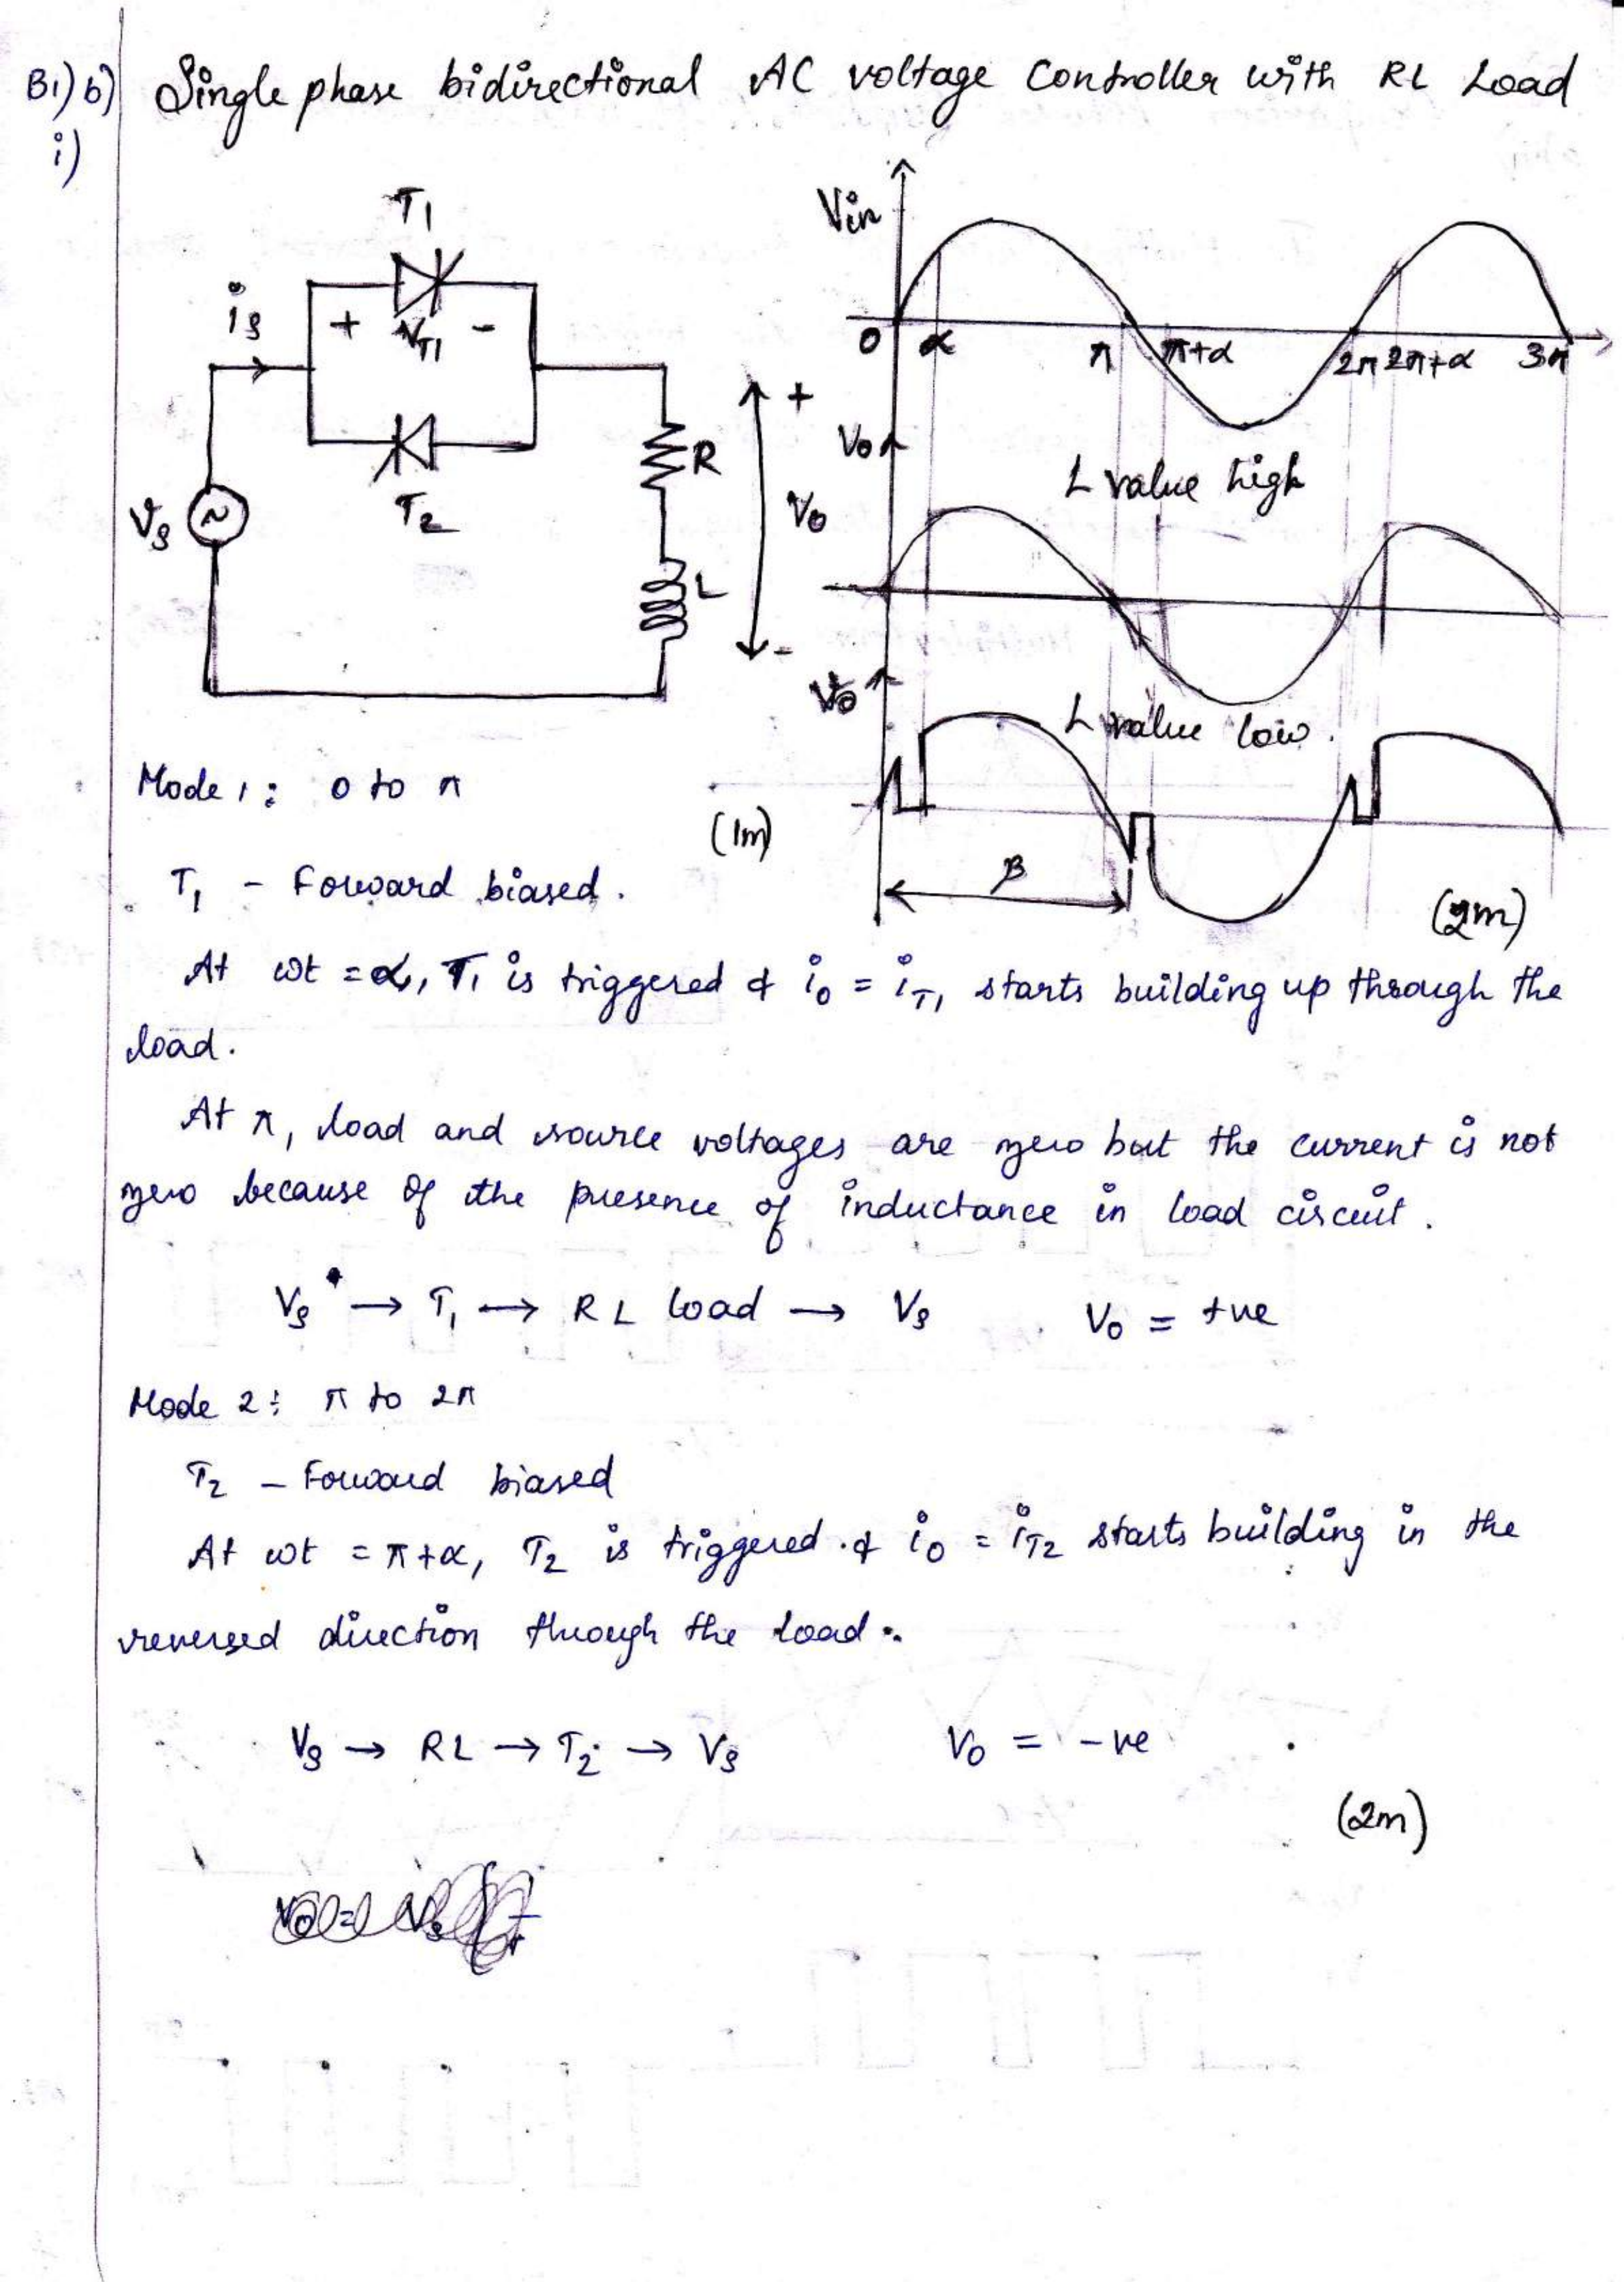 B1) b) Single phase bidirectional AC voltage Controller with RL Load
i)
T1
is
+ VT1 -
Vs
T2
R
L
+
Vo
-
Vin
0 α π π+α 2π 2π+α 3π
Vo
L value high
Vo
L value low.
β
(1m)
(2m)
Mode 1: 0 to π
T1 - Forward biased.
At ωt = α, T1 is triggered & io = iT1 starts building up through the
load.
At π, load and source voltages are zero but the current is not
zero because of the presence of inductance in load circuit.
Vs → T1 → RL load → Vs Vo = +ve
Mode 2: π to 2π
T2 - Forward biased
At ωt = π+α, T2 is triggered & io = iT2 starts building in the
reversed direction through the load.
Vs → RL → T2 → Vs Vo = -ve
(2m)